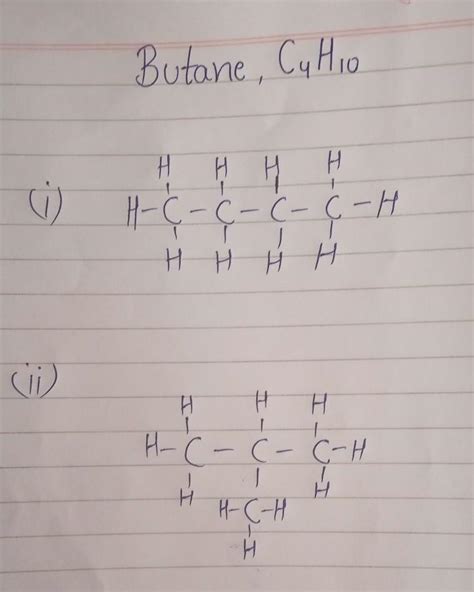 Butane, C₄H₁₀
H H H H
(i) H-C-C-C-C-H
H H H H
(ii)
H H H
H-C-C-C-H
H H
H-C-H
H